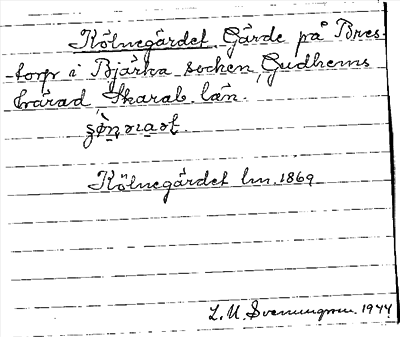 Kölnegärdet. Gärde på Bres-
-torp i Bjärka socken, Gudhems
härad, Skarab. län.
Kölnegärdet lm. 1869
1944